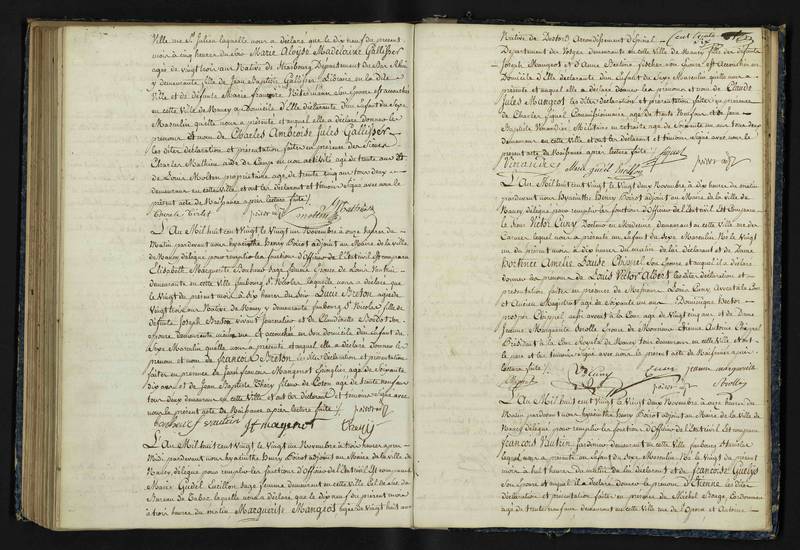 Ville rue St Julien laquelle nous a déclaré que le dix neuf du présent
mois à cinq heures du soir Marie Aloyse Madelaine Gallisser
agée de vingt trois ans Native de Strasbourg Département du Bas Rhin
y demeurante fille de Jean Baptiste Gallisser Libraire en la dite
Ville et de défunte Marie françoise
en cette Ville de Nancy a Domicile d'Elle déclarante d'un Enfant du Sexe
Masculin quelle nous a présenté et auquel elle a déclaré donner le
prenom et nom de Charles Ambroise Jules Gallisser
les dites Déclaration et présentation faites en présence des Sieurs
Charles Mathieu aide de Camp en non activité agé de trente ans
de Louis Molton propriétaire agé de trente cinq ans tous deux
demeurant en cette Ville et ont les déclarant et témoins signé avec nous le
présent acte de Naissance après lecture faite
L'An Mil huit cent Vingt le Vingt un Novembre à onze heures du
Matin pardevant nous hyacinthe Henry Boirot adjoint au Maire de la ville
de Nancy, délégué pour remplir les fonctions d'Officier de l'Etat civil Est comparu
Elisabeth Marguerite Bonheur Sage femme Epouse de Louis Vautrin
demeurante en cette Ville faubourg St Nicolas laquelle nous a déclaré que
le Vingt du présent mois à dix heures du Soir Lucie Breton agée de
Vingt trois ans Native de Nancy y demeurante faubourg St Nicolas fille de
défunts Joseph Breton vivant Journalier et de Claudinette
Epouse, demeurante est accouchée en son domicile d'un Enfant du
Sexe Masculin quelle nous a présenté et auquel elle a déclaré donner le
prenom et nom de françois Breton les dites Déclaration et présentation
faites en présence de Jean françois Mangenot Epinglier agé de Soixante
dix ans et de Jean Baptiste Thiery fileur de Coton agé de trente neuf ans
tous deux demeurant en cette Ville et ont les déclarant et témoins signé avec
nous le présent acte de Naissance après lecture faite
bonheur f vautrin Jf mangenot
L'An Mil huit cent Vingt le Vingt un Novembre à trois heures après
Midi pardevant nous hyacinthe Henry Boirot adjoint au Maire de la ville de
Nancy, délégué pour remplir les fonctions d'Officier de l'Etat civil Est comparue
Marie Gudel Curillon sage femme demeurante en cette Ville
Bureau de Tabac laquelle nous a déclaré que le dix neuf du présent mois
à trois heures du matin Marguerite Mangeot agée de vingt huit ans
Native de Arrondissement d'Epinal
Département des Vosges demeurante en cette Ville de Nancy fille des défunts
Joseph Mangeot et d'Anne son Epouse Est accouchée en
Domicile d'Elle déclarante d'un Enfant du Sexe Masculin quelle nous a
présenté et auquel elle a déclaré donner les prenoms et nom de Claude
Jules Mangeot les dites Déclaration et présentation faites en présence
de Charles Signal Commissionnaire agé de trente neuf ans et de Jean
Baptiste Militaire en retraite agé de Soixante un ans tous deux
demeurant en cette Ville et ont les déclarant et témoins signé avec nous le
présent acte de Naissance après lecture faite
L'An Mil huit cent Vingt le Vingt deux Novembre à dix heures du matin
pardevant nous hyacinthe Henry Boirot adjoint au Maire de la Ville de
Nancy, délégué pour remplir les fonctions d'Officier de l'Etat civil Est comparu
le Sieur Victor Cuny Docteur en Médecine demeurant en cette Ville rue des
Carmes lequel nous a présenté un Enfant du Sexe Masculin Né le Vingt
un du présent mois à dix heures du matin de lui déclarant et de Dame
hortence Amelie Louise Chippel son Epouse et auquel il a déclaré
donner les prenoms de Louis Victor Albert les dites déclaration et
présentation faites en présence de Messieurs Louis Cuny Avocat à la Cour
et Ancien Magistrat agé de soixante un ans Dominique Victor
prosper Chippel aussi avocat à la Cour agé de vingt cinq ans et de Dame
Jeanne Marguerite Epouse de Monsieur Etienne Antoine Chippel
Président à la Cour Royale de Nancy tous demeurant en cette Ville et ont
le père et les témoins signé avec nous le présent acte de Naissance après
lecture faite
V Cuny Cuny jeanne marguerite
L'An Mil huit cent Vingt le Vingt deux Novembre à onze heures du
Matin pardevant nous hyacinthe Henry Boirot adjoint au Maire de la Ville de
Nancy, délégué pour remplir les fonctions d'Officier de l'Etat civil Est comparu
francois Vautrin Jardinier demeurant en cette Ville faubourg
lequel nous a présenté un Enfant du Sexe Masculin Né le Vingt du présent
mois à huit heures du matin de lui déclarant et de francoise
son Epouse et auquel il a déclaré donner le prenom d'Etienne les dites
déclaration et présentation faites en présence de Michel Cordonnier
agé de trente neuf ans demeurant en cette Ville rue de l'Opera et Antoine